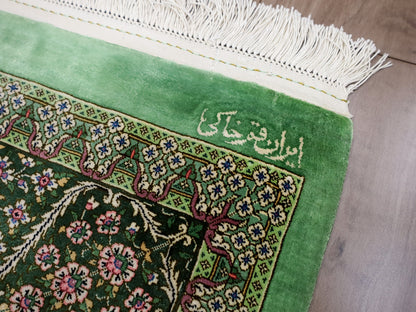 ایران قم خاکی